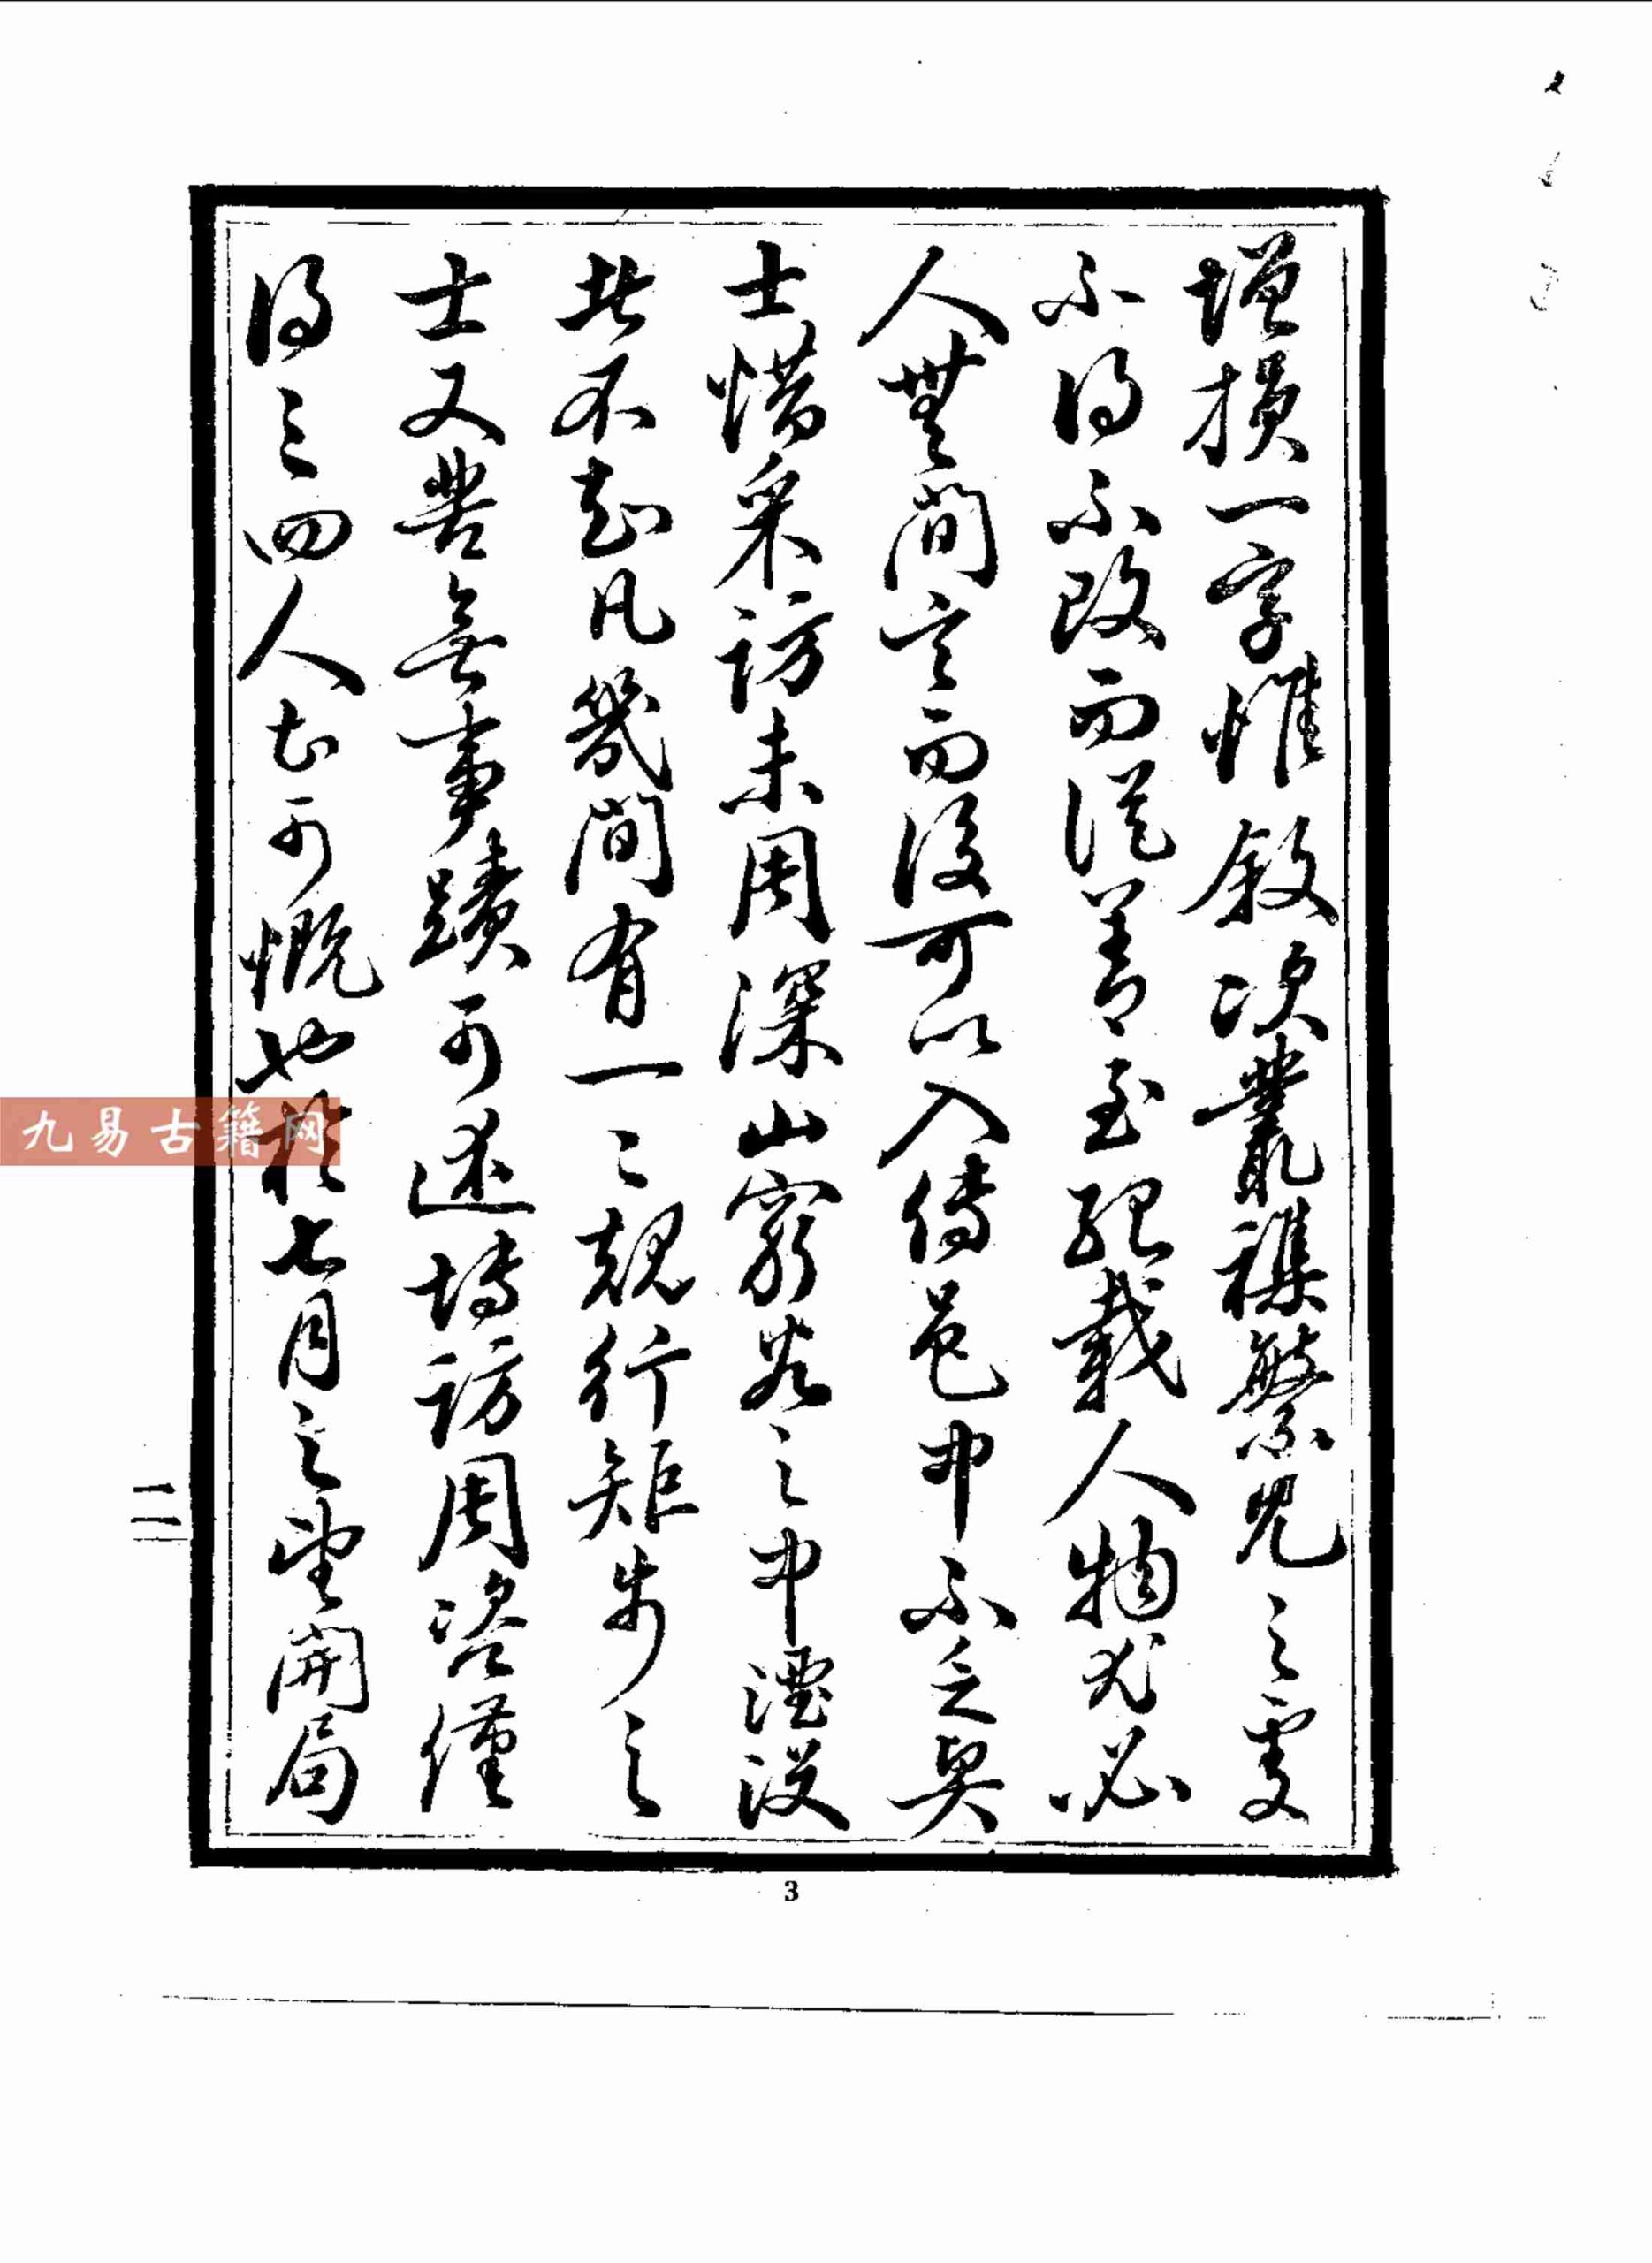 增損一字惟敘次叢襍繁冗之處
不得不改而從善至紀載人物尤必
人無間言而後可以入傳邑中不乏奥
士惜采訪未周深山窮谷之中湮没
者不知凡幾間有一二規行矩步之
士又苦無事蹟可述博訪周咨僅
得三四人亦可慨也於七月之望開局
二
3
九易古籍网